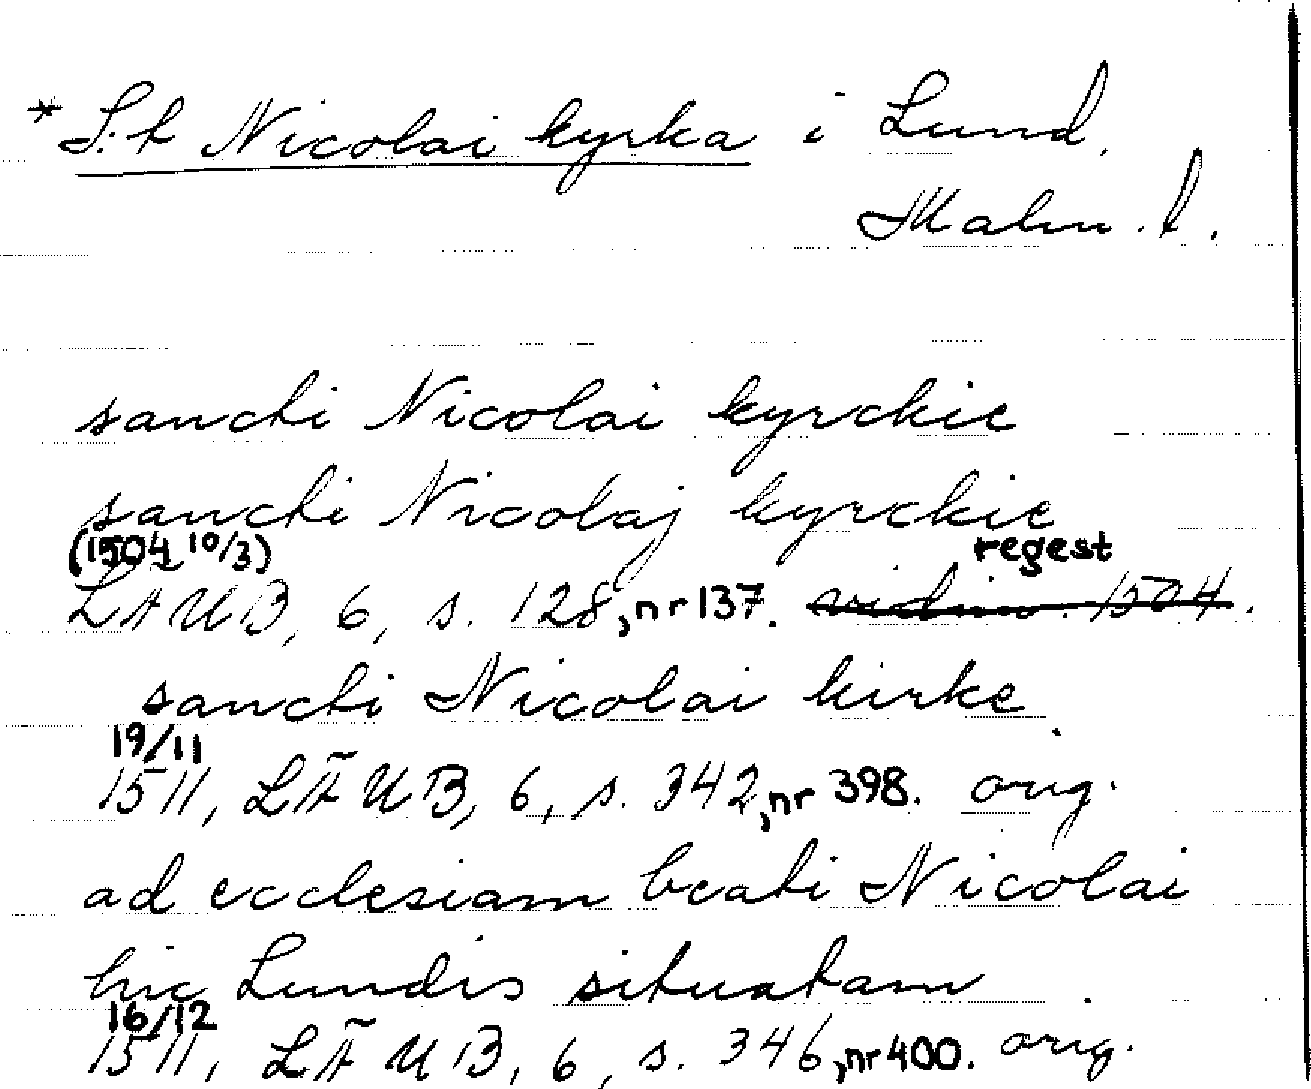 * S:t Nicolai kyrka i Lund.
Malm. l.
sancti Nicolai kyrckie
sancti Nicolaj kyrckie
(1504 10/3) regest
LÄUB, 6, s. 128, nr 137. vidim. 1504.
sancti Nicolai kirke
19/11
1511, LÄUB, 6, s. 342, nr 398. orig.
ad ecclesiam beati Nicolai
hic Lundis situatam
16/12
1511, LÄUB, 6, s. 346, nr 400. orig.